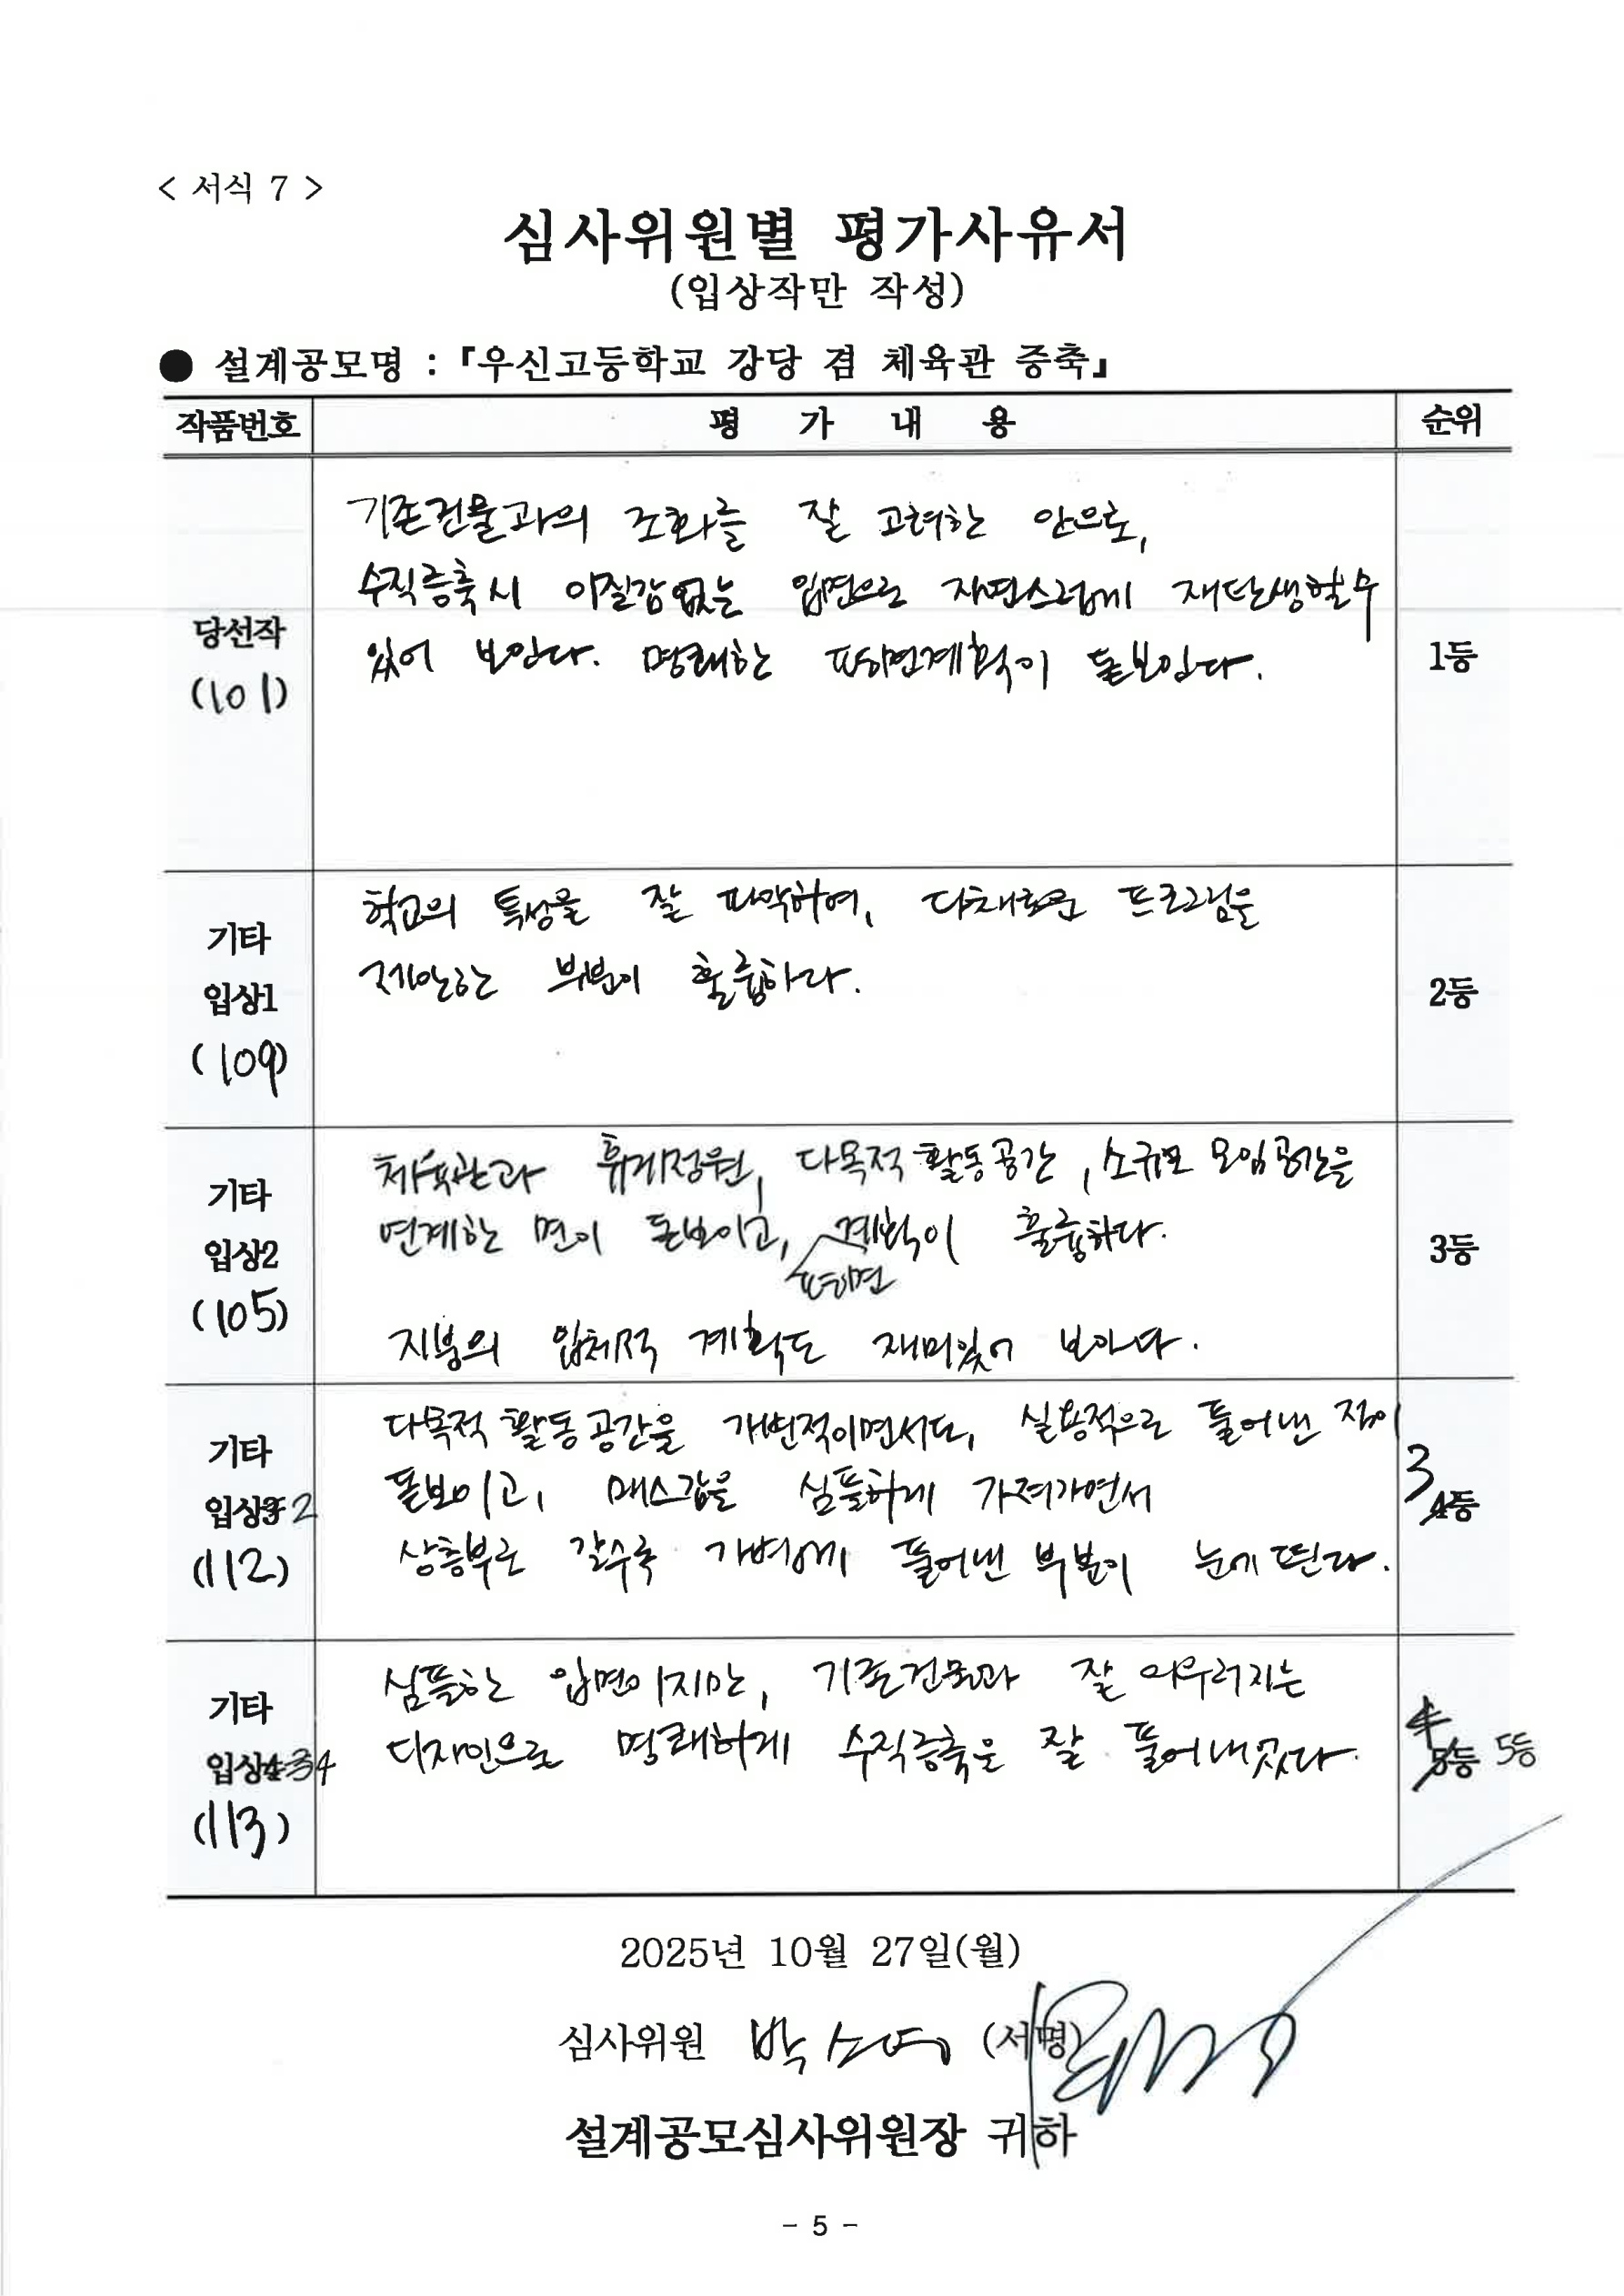 < 서식 7 >
심사위원별 평가사유서
(입상작만 작성)
● 설계공모명 : 『우신고등학교 강당 겸 체육관 증축』
작품번호 평 가 내 용 순위
당선작
(101)
기존건물과의 조화를 잘 고려한 안으로,
수직증축시 이질감없는 입면으로 자연스럽게 재탄생할수
있어 보인다. 명쾌한 평면계획이 돋보인다.
1등
기타
입상1
(109)
학교의 특성을 잘 파악하여, 다채로운 프로그램을
제안하는 부분이 훌륭하다.
2등
기타
입상2
(105)
체육관과 휴게정원, 다목적 활동공간, 소규모 모임공간을
연계한 면이 돋보이고, 계획이 훌륭하다.
평면
지붕의 입체적 계획도 재미있어 보인다.
3등
기타
입상3 2
(112)
다목적 활동공간을 가변적이면서도, 실용적으로 풀어낸 점이
돋보이고, 매스감을 심플하게 가져가면서
상층부로 갈수록 가볍게 풀어낸 부분이 눈에 띈다.
3
4등
기타
입상4 3 4
(113)
심플한 입면이지만, 기존건물과 잘 어우러지는
디자인으로 명쾌하게 수직증축을 잘 풀어내었다.
4
5등 5등
2025년 10월 27일(월)
심사위원 박 (서명)
설계공모심사위원장 귀하
- 5 -